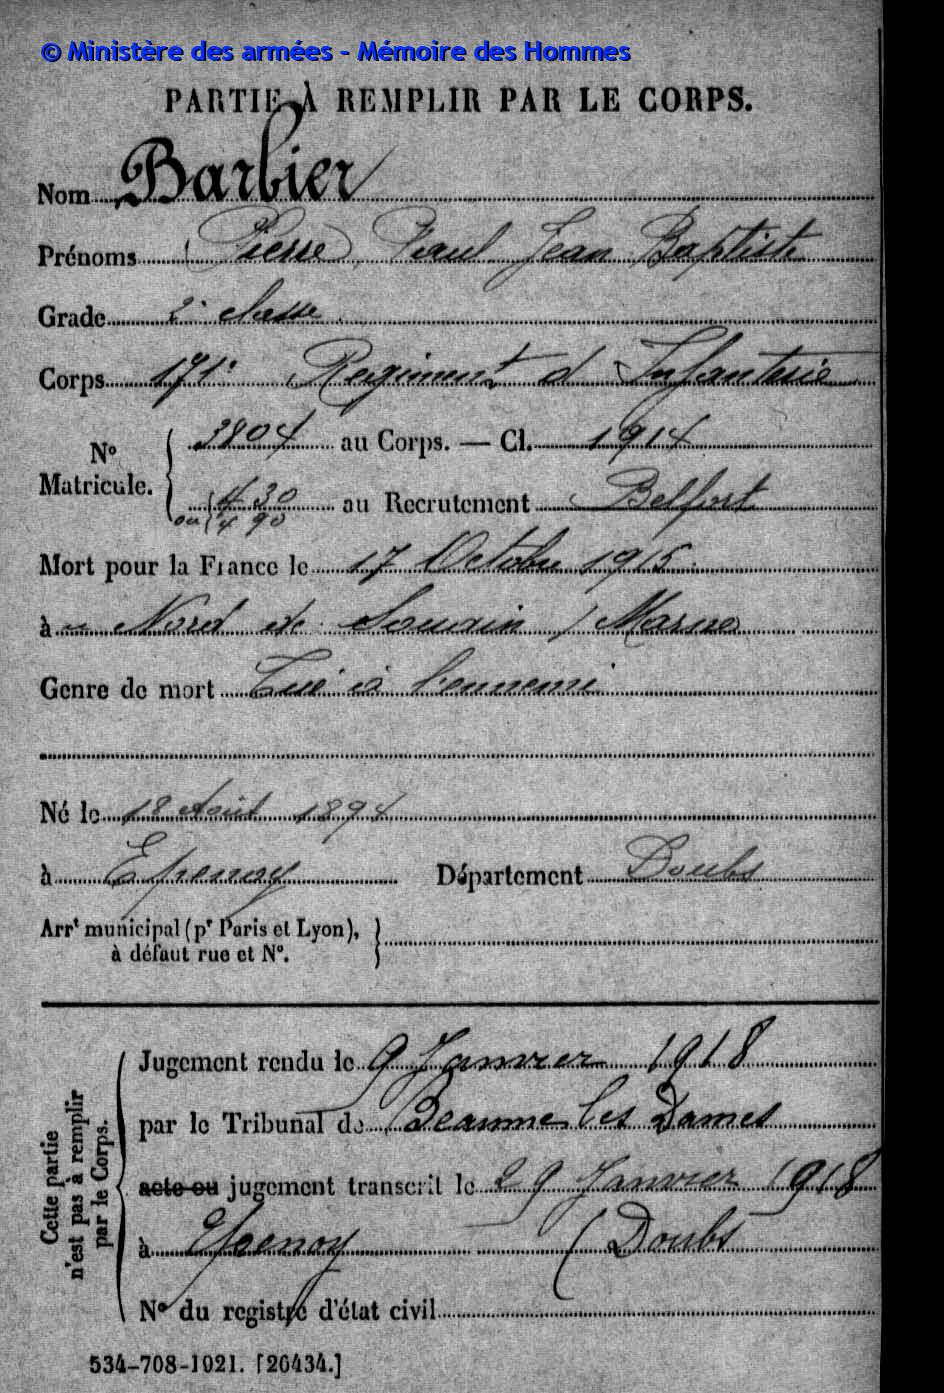 © Ministère des armées - Mémoire des Hommes
PARTIE À REMPLIR PAR LE CORPS.
Nom Barbier
Prénoms (Pierre) Paul Jean Baptiste
Grade 2e classe
Corps 171e Régiment d'Infanterie
No Matricule. { 3804 au Corps. — Cl. 1914
430 au Recrutement Belfort
ou 490
Mort pour la France le 17 Octobre 1915
à Nord de Souain (Marne)
Genre de mort Tué à l'ennemi
Né le 18 Août 1894
à Epenoy Département Doubs
Arrt municipal (pr Paris et Lyon),
à défaut rue et No.
Cette partie n'est pas à remplir par le Corps.
Jugement rendu le 9 Janvier 1918
par le Tribunal de Beaume les Dames
acte ou jugement transcrit le 29 Janvier 1918
à Epenoy (Doubs
No du registre d'état civil
534-708-1921. [26434.]